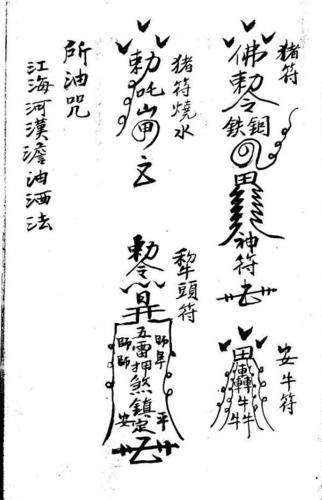 猪符
佛勅令
鉄銅
田
神符
安牛符
田
牛牛
牛牛
猪符燒水
勅吒山
犂頭符
勅令
五雷押煞鎮定
安平
所油咒
江海河漢澹油洒法